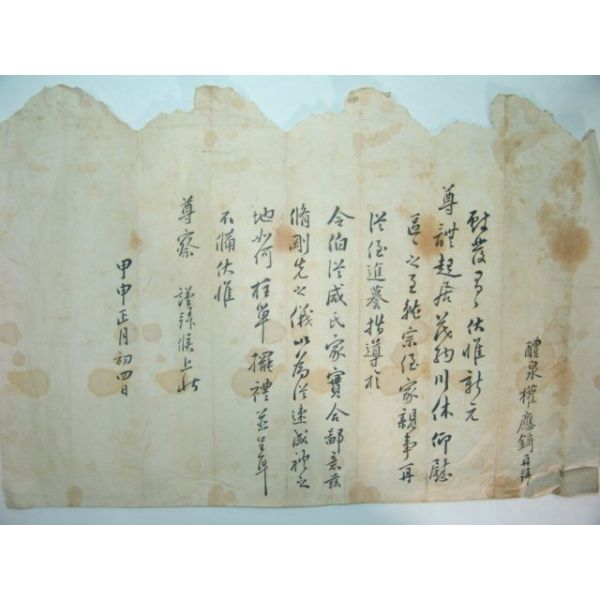 醴泉權應鑄再拜
伏惟新元
尊體起居茂納川休仰慰
區區之至 宗侄家親事再
從侄進基指導於
令伯從咸氏家實合鄙意茲
脩剛先之儀以為從速成禮之
地如何柱單擇禮並呈耳
不備伏惟
尊察 謹拜候上狀
甲申正月初四日